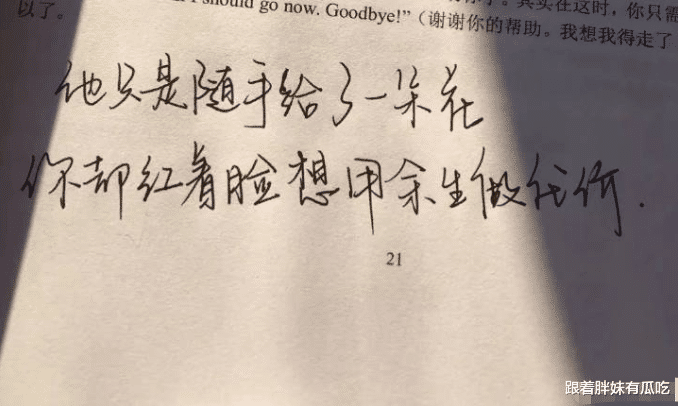 I should go now. Goodbye!”（谢谢你的帮助。我想我得走了
以了。
他只是随手给了一朵花
你却红着脸想用余生做代价.
21
跟着胖妹有瓜吃